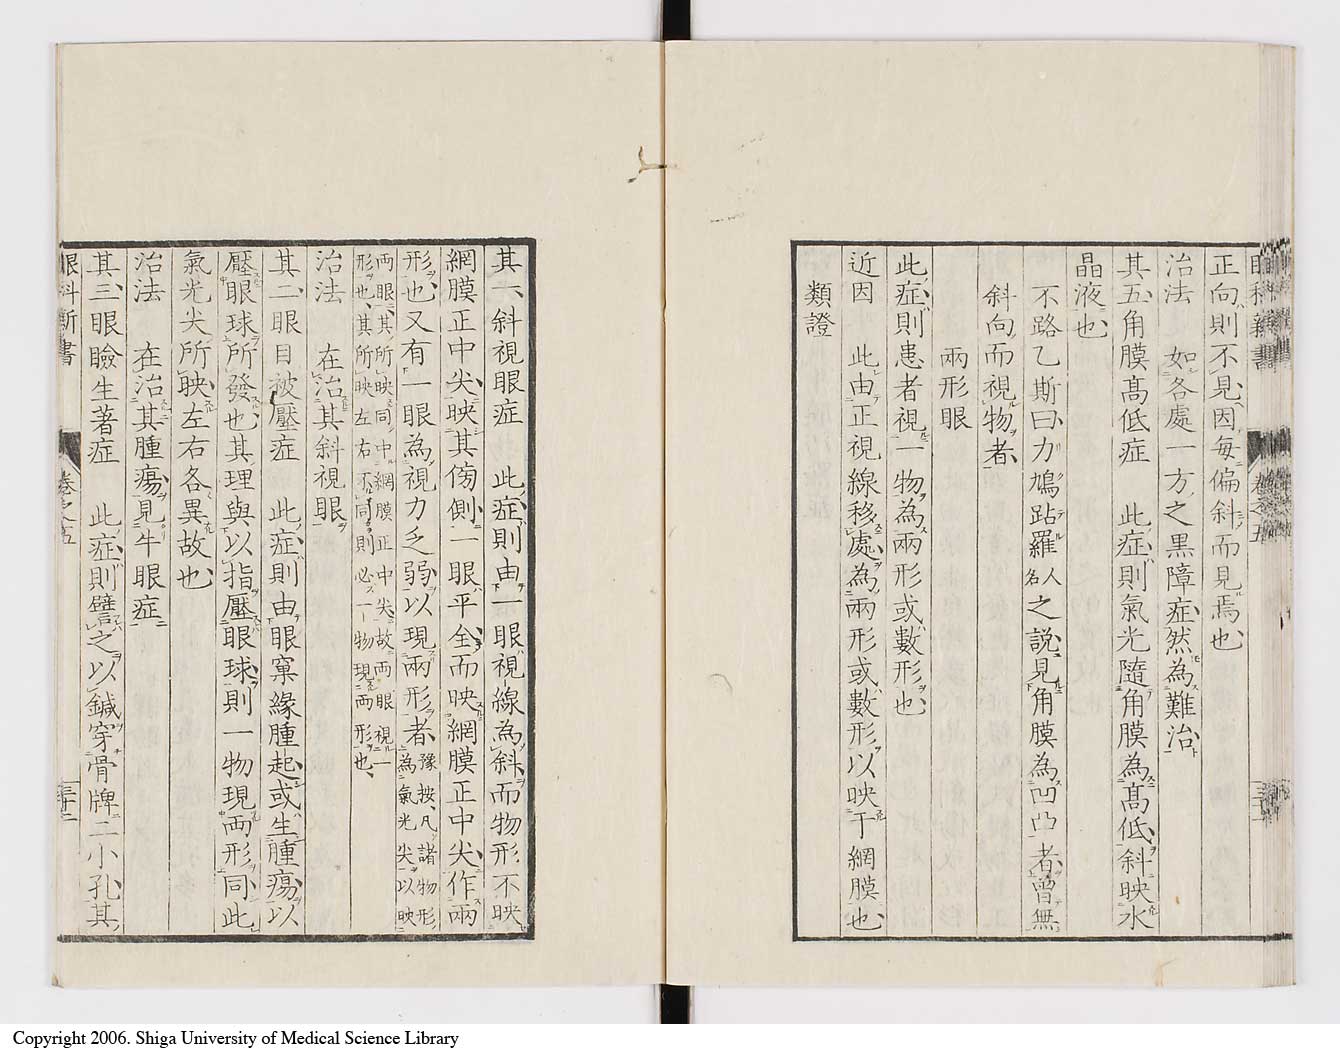 正向則不見因每偏斜而見焉也
治法　如各處一方之黒障症然為難治
其五角膜髙低症　此症則氣光隨角膜為髙低斜映水
晶液也
不路乙斯曰力鳩跕羅人名之説見角膜為凹凸者曾無
斜向而視物者
兩形眼
此症則患者視一物為兩形或數形也
近因　此由正視線移處為兩形或數形以映于網膜也
類證
其一、斜視眼症　此症則由一眼視線為斜而物形不映
網膜正中尖映其傍側一眼平全而映網膜正中尖作兩
形也又有一眼為視力乏弱以現兩形者豫按凡諸物形為氣光尖以映
両眼其所映同中網膜正中尖故両眼視一
形也其所映左右不同則必一物現両形也
治法　在治其斜視眼
其二、眼目被壓症　此症則由眼窠緣腫起或生腫瘍以
壓眼球所發也其理與以指壓眼球則一物現両形同此
氣光尖所映左右各異故也
治法　在治其腫瘍見牛眼症
其三、眼瞼生著症　此症則譬之以鍼穿骨牌二小孔其
眼科新書　卷之五　三十二
Copyright 2006. Shiga University of Medical Science Library